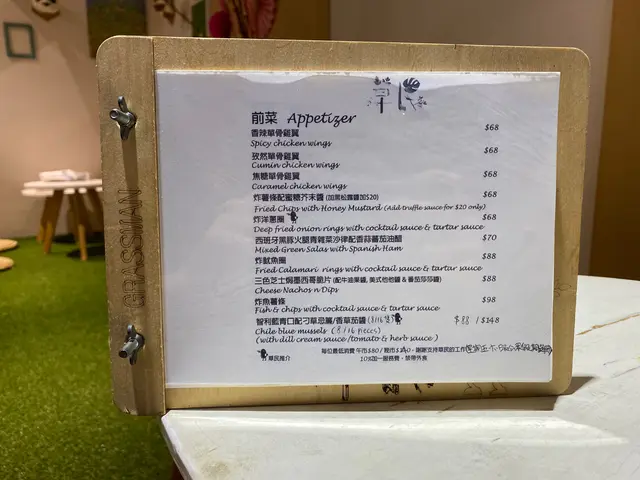 前菜 Appetizer
香辣單骨雞翼 $68
Spicy chicken wings
孜然單骨雞翼 $68
Cumin chicken wings
焦糖單骨雞翼 $68
Caramel chicken wings
炸薯條配蜜糖芥末醬 (加黑松露醬加$20) $68
Fried Chips with Honey Mustard (Add truffle sauce for $20 only)
炸洋蔥圈 $68
Deep fried onion rings with cocktail sauce & tartar sauce
西班牙黑豚火腿青雜菜沙律配香蒜蕃茄油醋 $70
Mixed Green Salas with Spanish Ham
炸魷魚圈 $88
Fried Calamari rings with cocktail sauce & tartar sauce
三色芝士焗墨西哥脆片 (配牛油果醬, 美式他他醬 & 蕃茄莎莎醬) $88
Cheese Nachos n Dips
炸魚薯條 $98
Fish & chips with cocktail sauce & tartar sauce
智利藍青口配刁草忌廉/香草茄醬 (8/16隻) $88 / $148
Chile blue mussels (8/16 pieces)
(with dill cream sauce /tomato & herb sauce )
草民推介
每位最低消費 午市$80/ 晚市$140, 謝謝支持草民的工作
10%加一服務費、禁帶外食
GRASSMAN